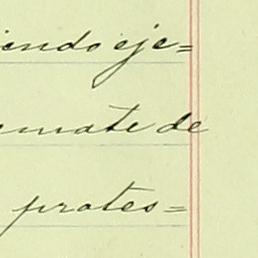 iendo eje=
emate de
protes=